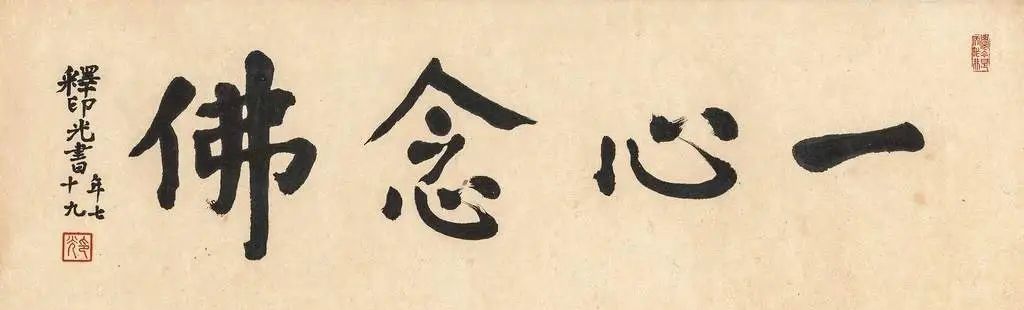 一心念佛
釋印光書
年七
十九
印光